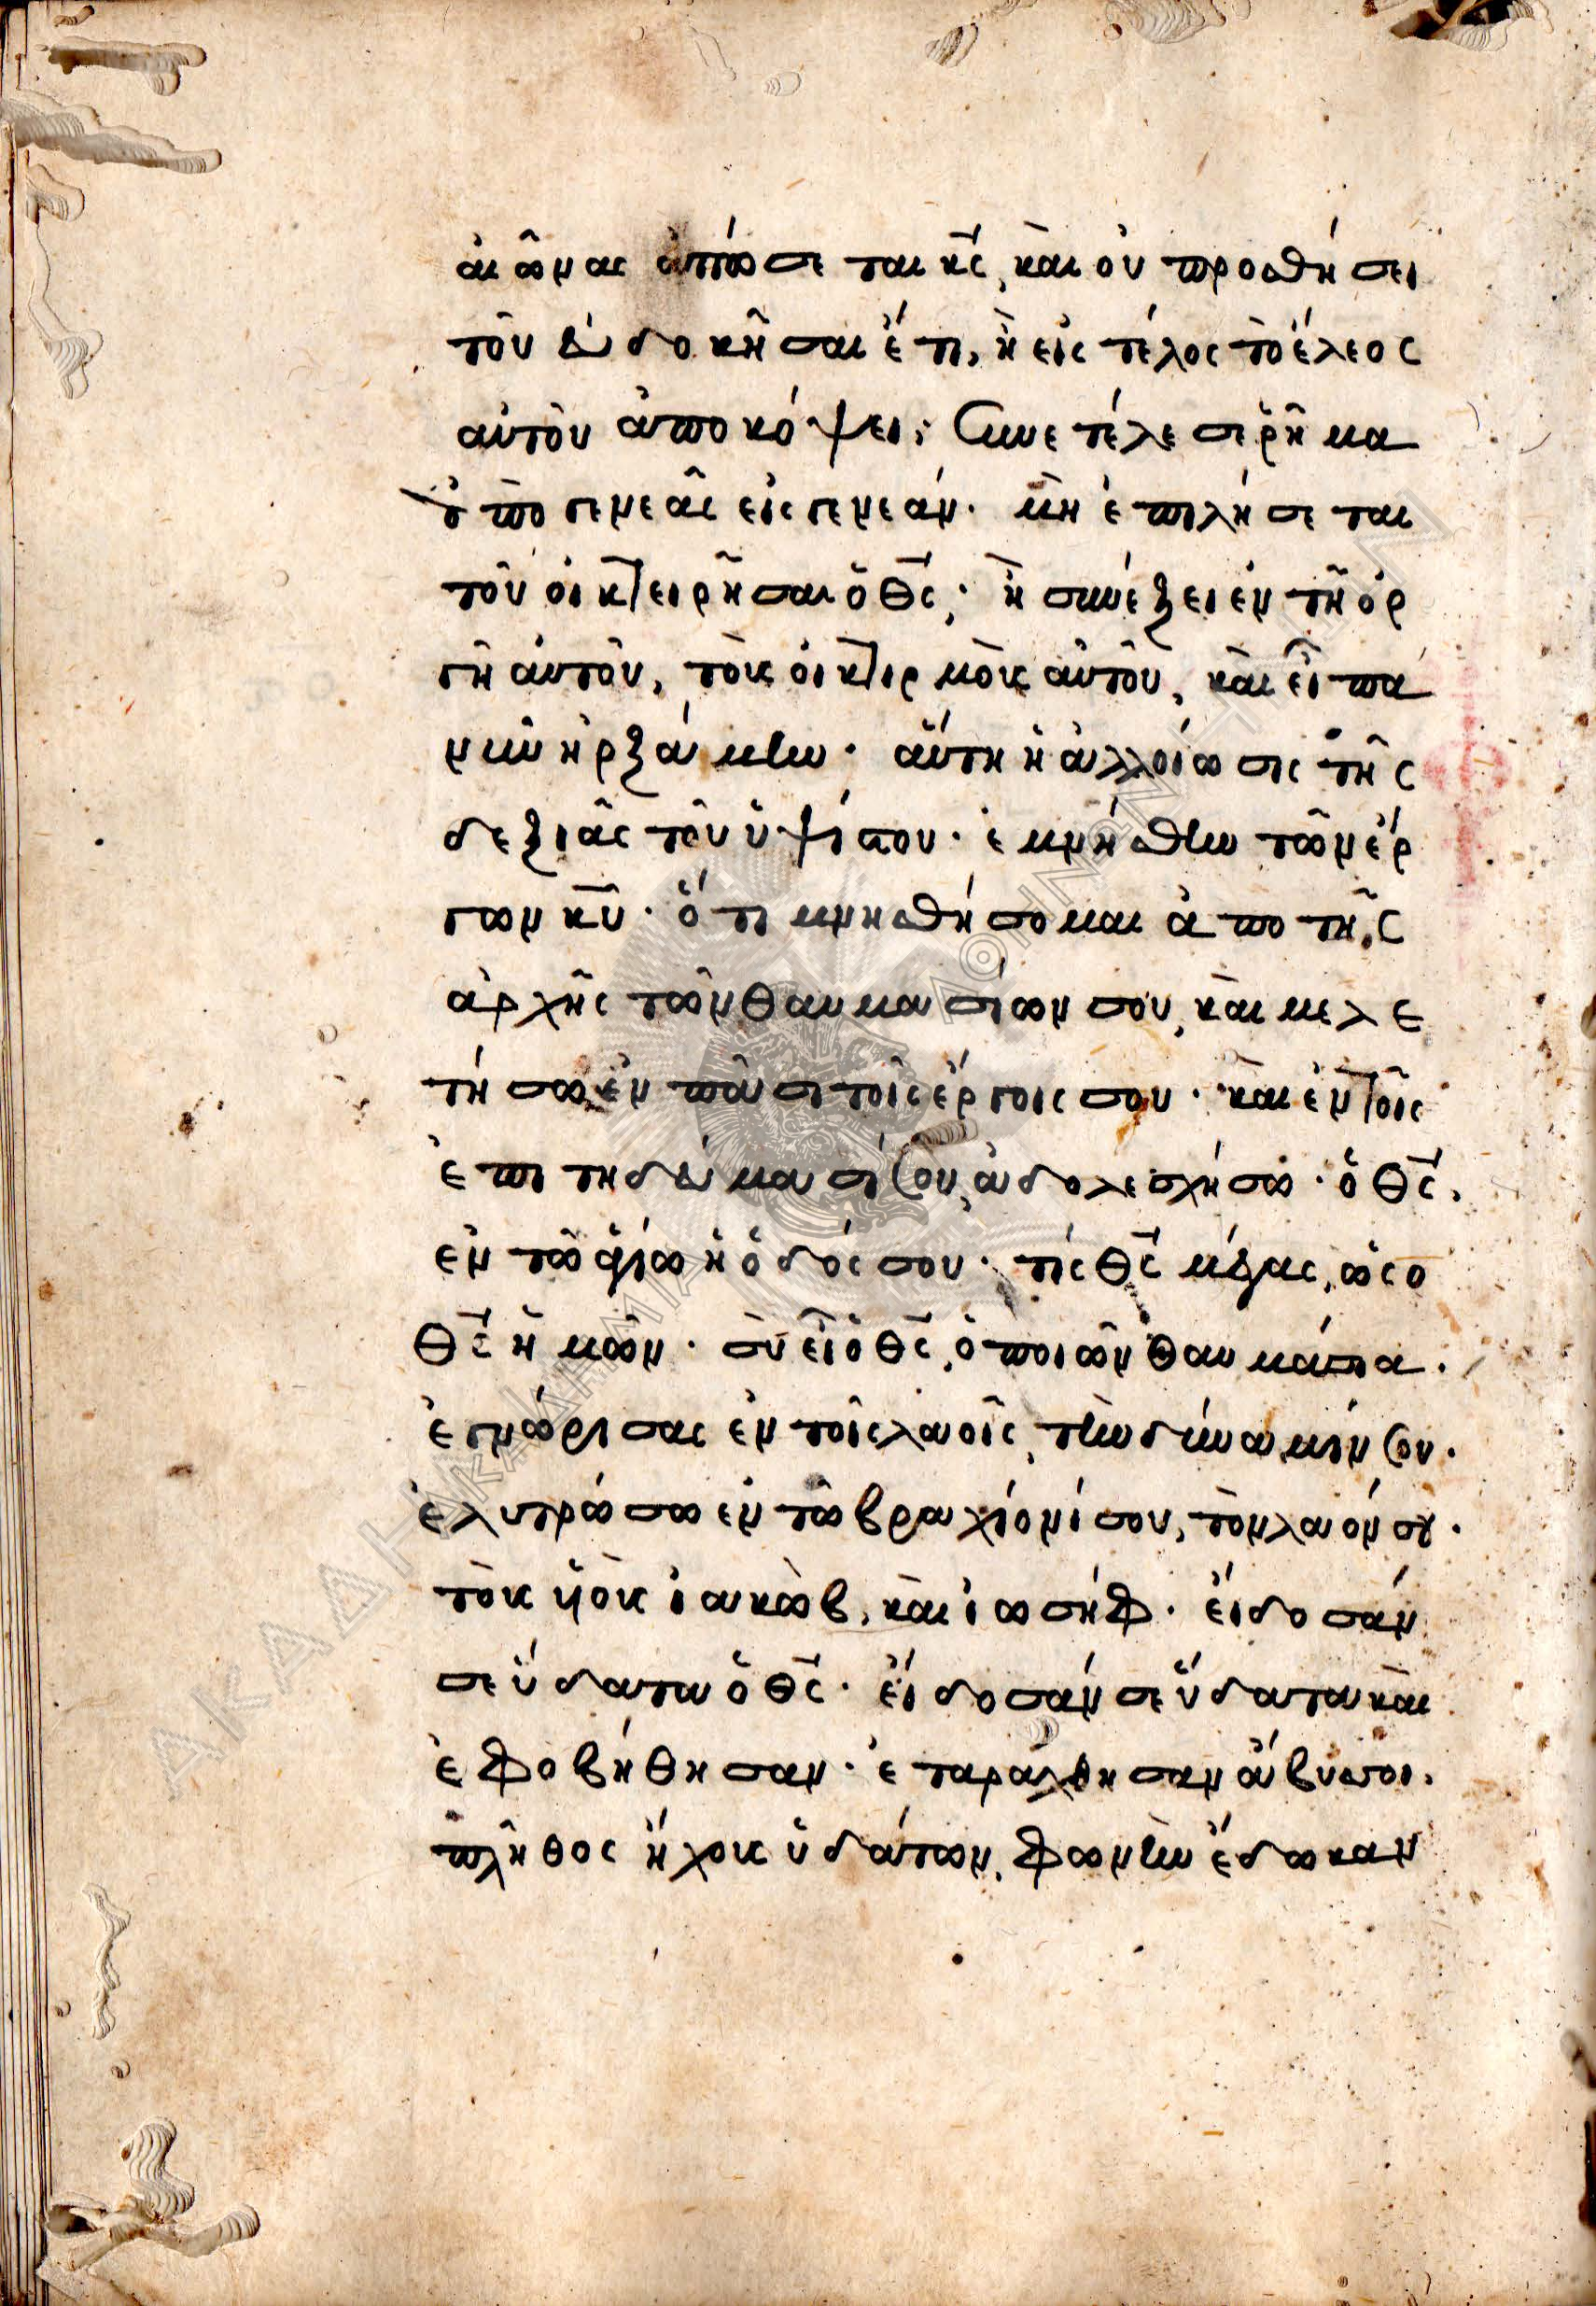 αἰῶνας ἀπώσεται κ̅ς̅, καὶ οὐ προσθήσει
τοῦ εὐδοκῆσαι ἔτι, ἢ εἰς τέλος τὸ ἔλεος
αὐτοῦ ἀποκόψει; συνετέλεσε ῥῆμα
ἀπὸ γενεᾶς εἰς γενεάν. μὴ ἐπιλήσεται
τοῦ οἰκτειρῆσαι ὁ θ̅ς̅; ἢ συνέξει ἐν τῇ ὀρ
γῇ αὐτοῦ, τοὺς οἰκτιρμοὺς αὐτοῦ, καὶ εἶπα
νῦν ἠρξάμην. αὕτη ἡ ἀλλοίωσις τῆς
δεξιᾶς τοῦ ὑψίστου. ἐμνήσθην τῶν ἔρ
γων κ̅υ̅. ὅτι μνησθήσομαι ἀπὸ τῆς
ἀρχῆς τῶν θαυμασίων σου, καὶ μελε
τήσω ἐν πᾶσι τοῖς ἔργοις σου. καὶ ἐν τοῖς
ἐπιτηδεύμασί σου, ἀδολεσχήσω. ὁ θ̅ς̅,
ἐν τῷ ἁγίῳ ἡ ὁδός σου. τίς θ̅ς̅ μέγας, ὡς ὁ
θ̅ς̅ ἡμῶν. σὺ εἶ ὁ θ̅ς̅, ὁ ποιῶν θαυμάσια.
ἐγνώρισας ἐν τοῖς λαοῖς, τὴν δύναμίν σου.
ἐλυτρώσω ἐν τῷ βραχίονί σου, τὸν λαόν σου.
τοὺς υἱοὺς ἰακὼβ, καὶ ἰωσήφ. εἴδοσάν
σε ὕδατα ὁ θ̅ς̅. εἴδοσάν σε ὕδατα καὶ
ἐφοβήθησαν. ἐταράχθησαν ἄβυσσοι.
πλῆθος ἤχους ὑδάτων, φωνὴν ἔδωκαν
ΑΚΑΔΗΜΙΑ ΑΘΗΝΩΝ